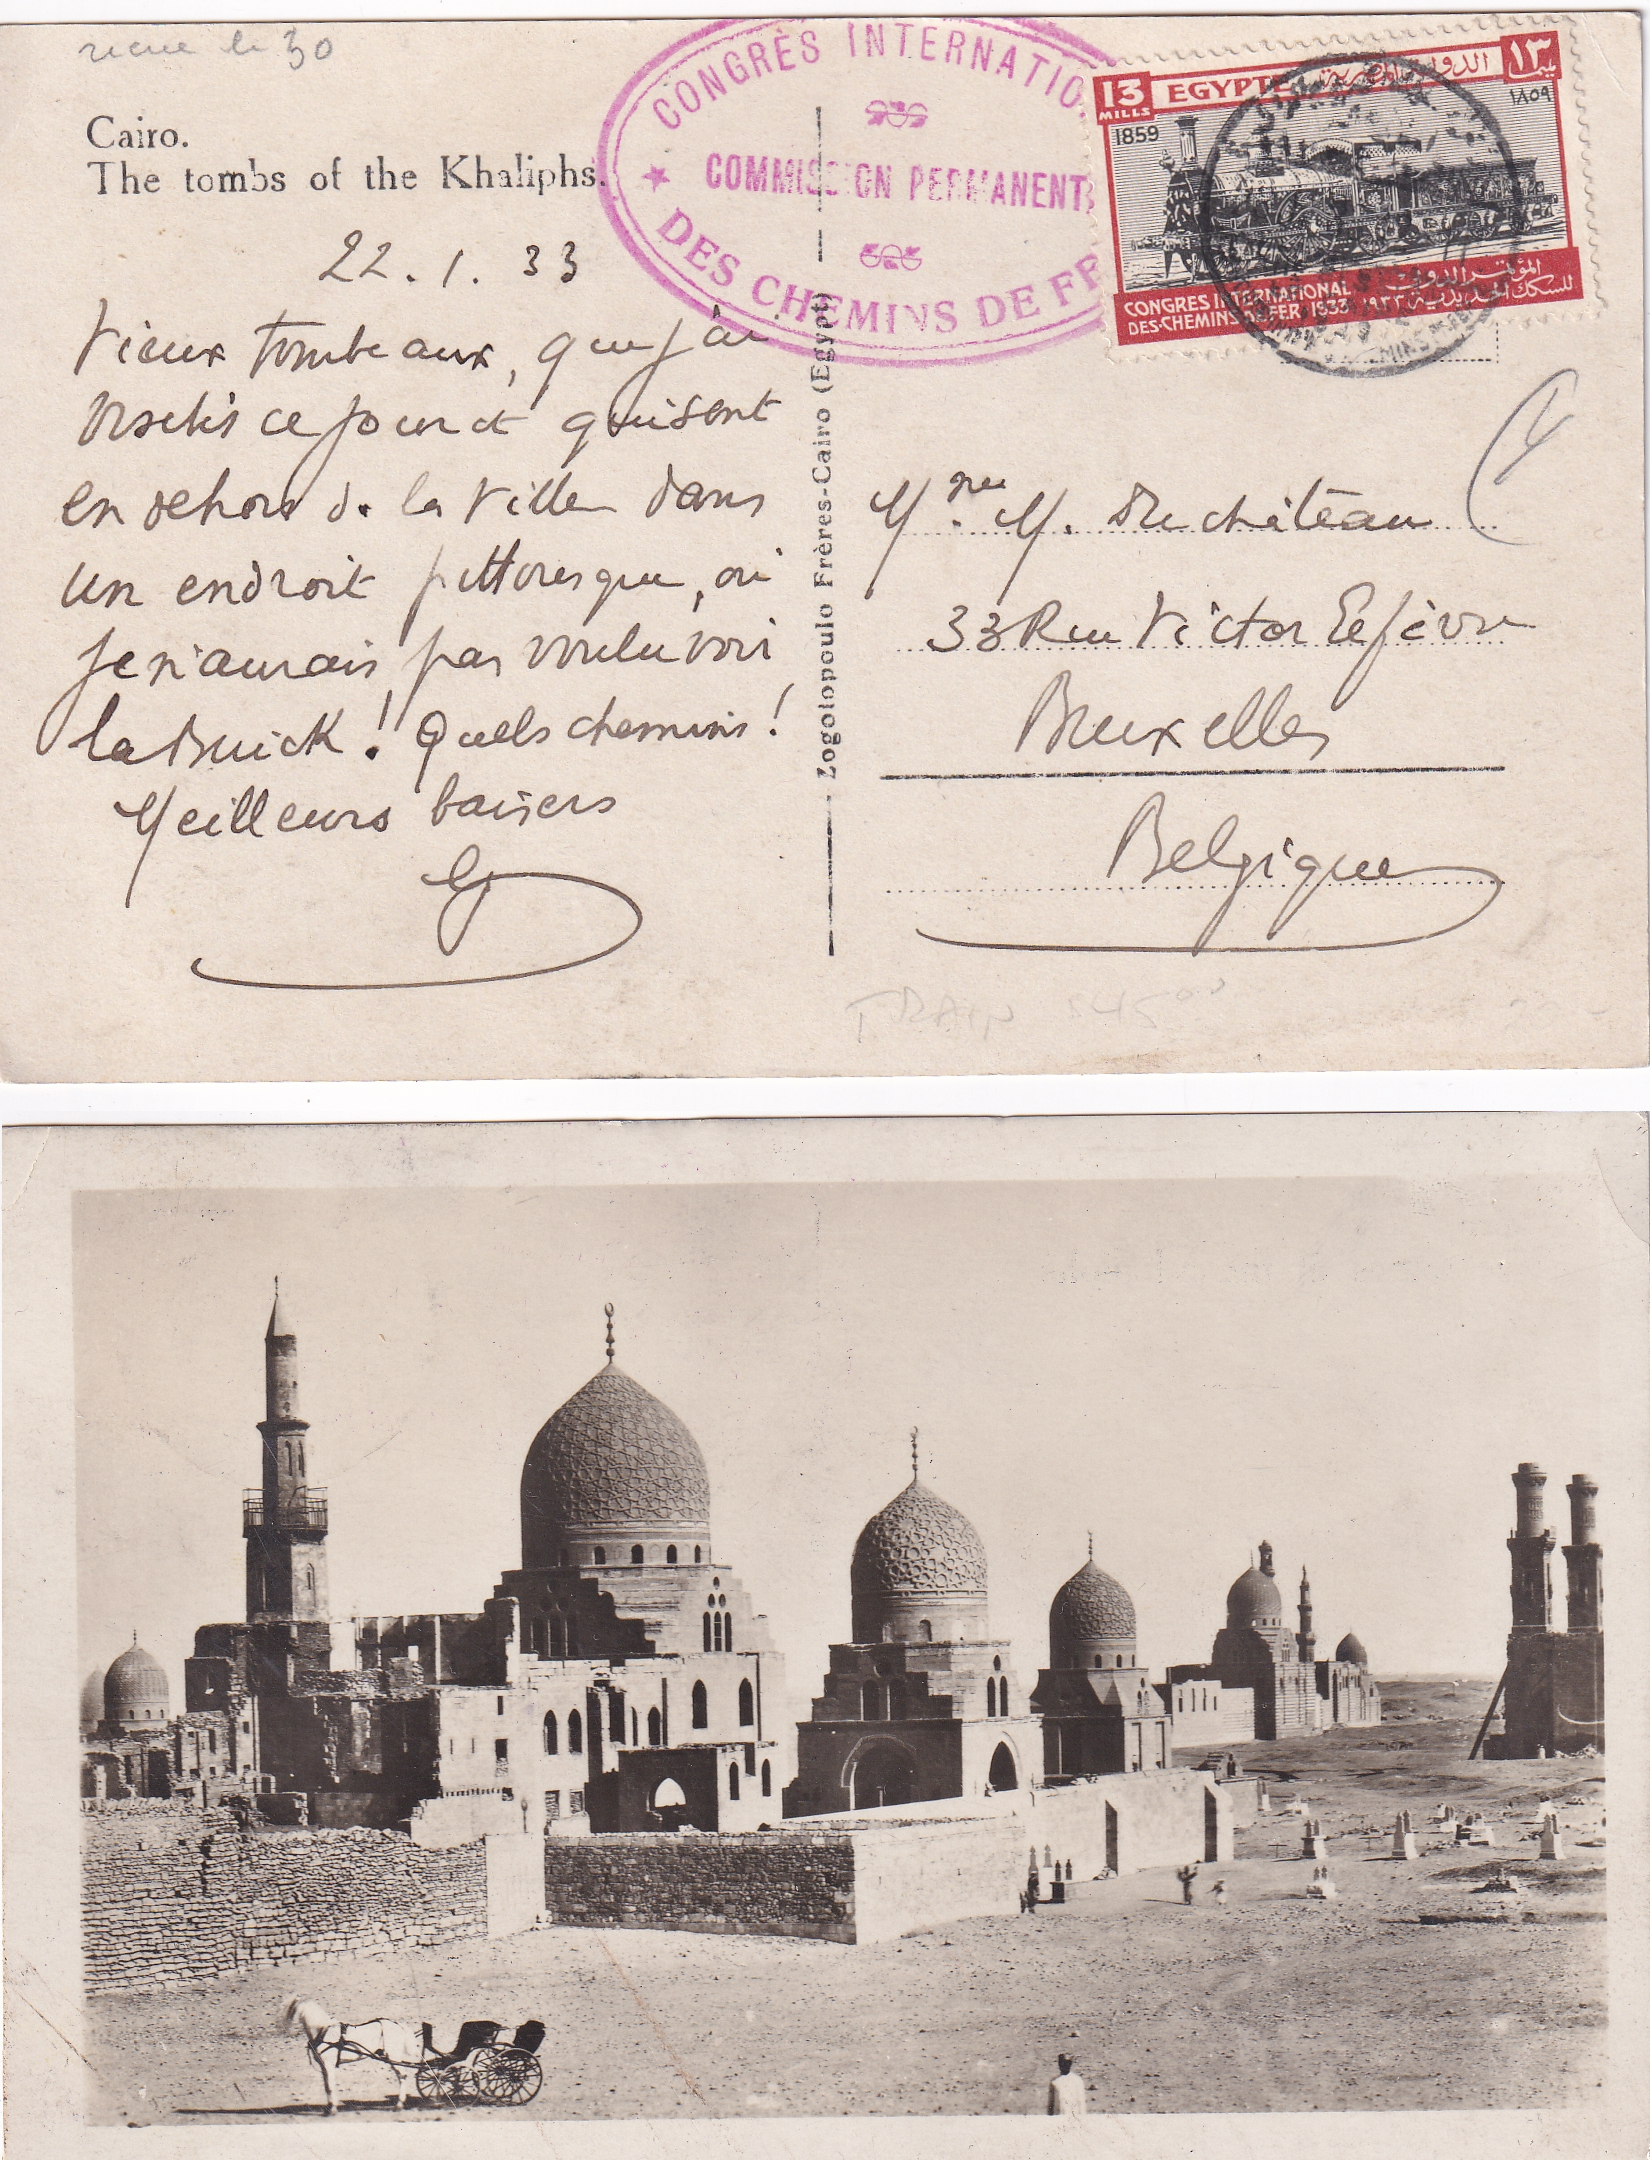 reçue le 30
Cairo.
The tombs of the Khaliphs.
22.1.33
Vieux tombeaux, que j'ai
visités ce jour et qui sont
en dehors de la ville dans
un endroit pittoresque, où
je n'aurais pas voulu voir
la Buick ! Quels chemins !
Meilleurs baisers
Zogolopoulo Frères-Cairo (Egypt)
CONGRÈS INTERNATIO
COMMISSION PERMANENTE
DES CHEMINS DE FE
13 MILLS
EGYPTE
الدولة المصرية
١٣
1859
١٨٥٩
CONGRES INTERNATIONAL
DES·CHEMINS·DE·FER·1933
المؤتمر الدولى
للسكك الحديدية ١٩٣٣
Mme M. Duchâteau
33 Rue Victor Lefèvre
Bruxelles
Belgique
TRAIN 545